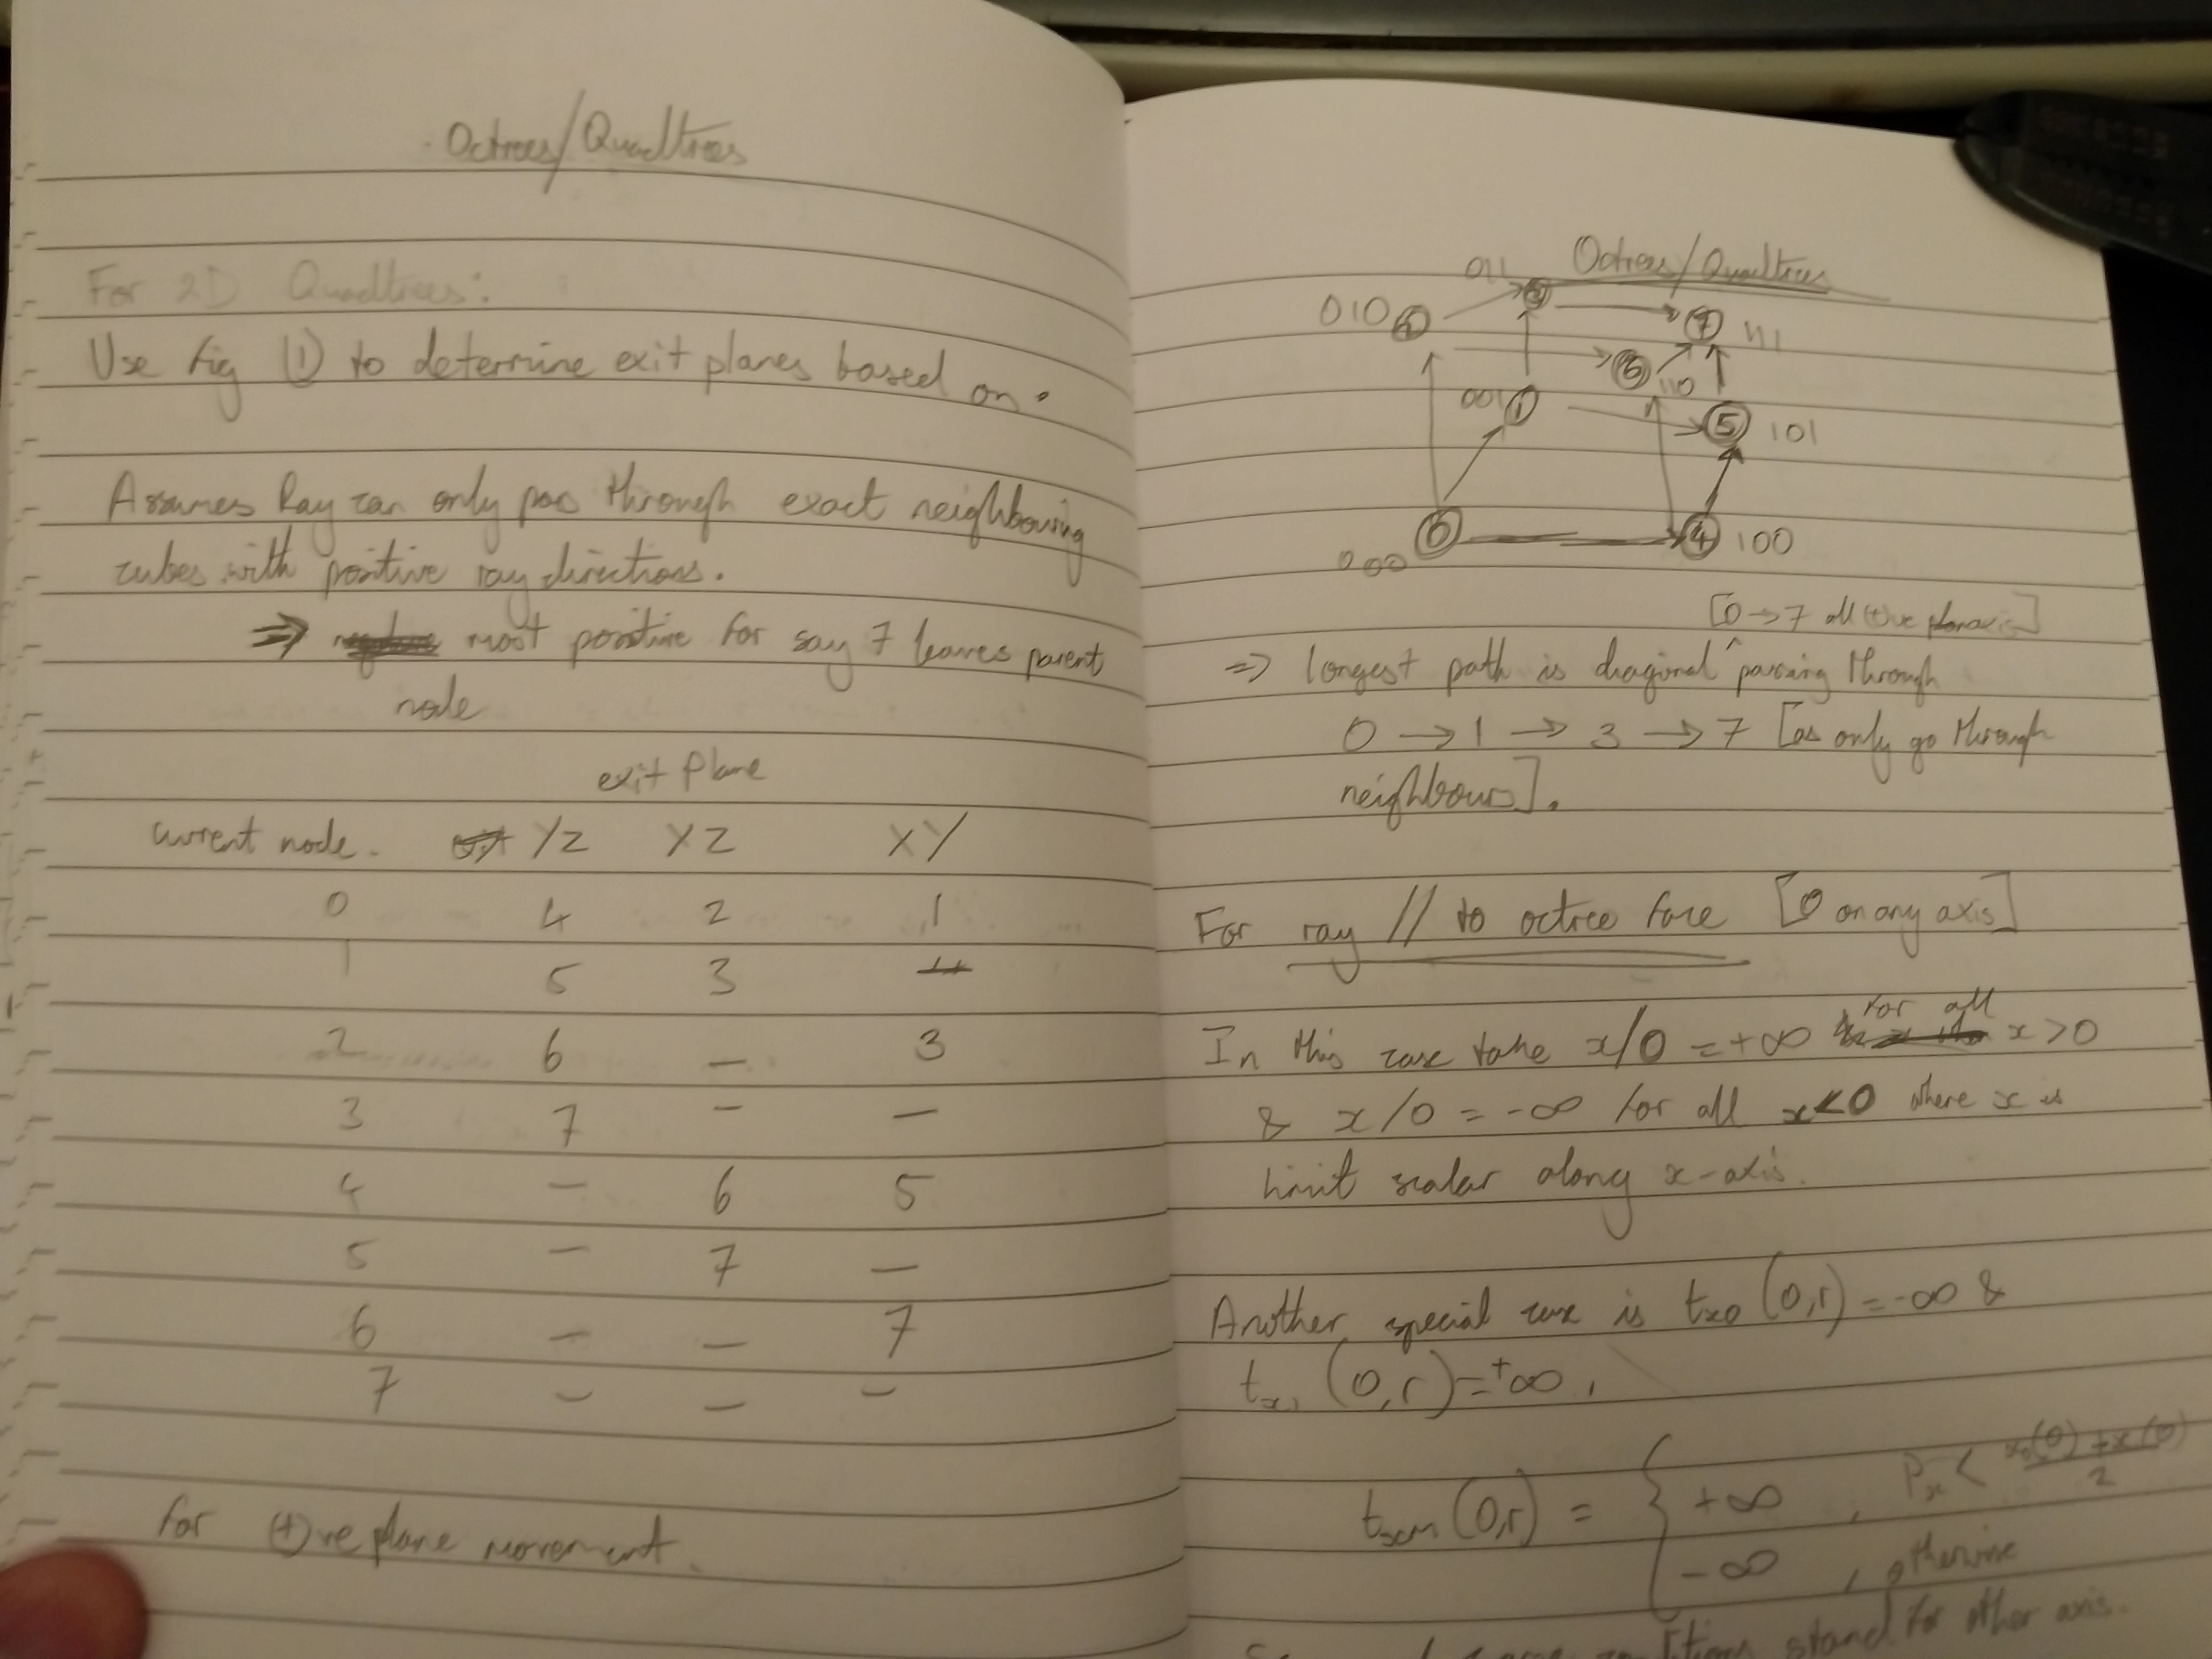 Octrees/Quadtrees
For 2D Quadtrees:
Use fig ① to determine exit planes based on:
Assumes Ray can only pass through exact neighbouring
cubes with positive ray directions.
⇒ most positive for say 7 leaves parent
node
exit Plane
current node. YZ XZ XY
0 4 2 1
1 5 3 —
2 6 — 3
3 7 - —
4 — 6 5
5 — 7 —
6 — — 7
7 - — —
for (+)ve plane movement.
Octrees/Quadtrees
011 ③
010 ② ⑦ 111
⑥ 110
001 ① ⑤ 101
⓪ ④ 100
000
[0→7 all (+)ve axis]
⇒ longest path is diagonal ^ passing through
0 → 1 → 3 → 7 [as only go through
neighbours].
For ray // to octree face [0 on any axis]
In this case take x/0 = +∞ for all x>0
& x/0 = -∞ for all x<0 where x is
limit scalar along x-axis.
Another special case is tx0 (0,r) = -∞ &
tx1 (0,r) = +∞,
txm (0,r) = { +∞ , Px < x0(0) + x1(0) / 2
-∞ , otherwise
stand for other axis.